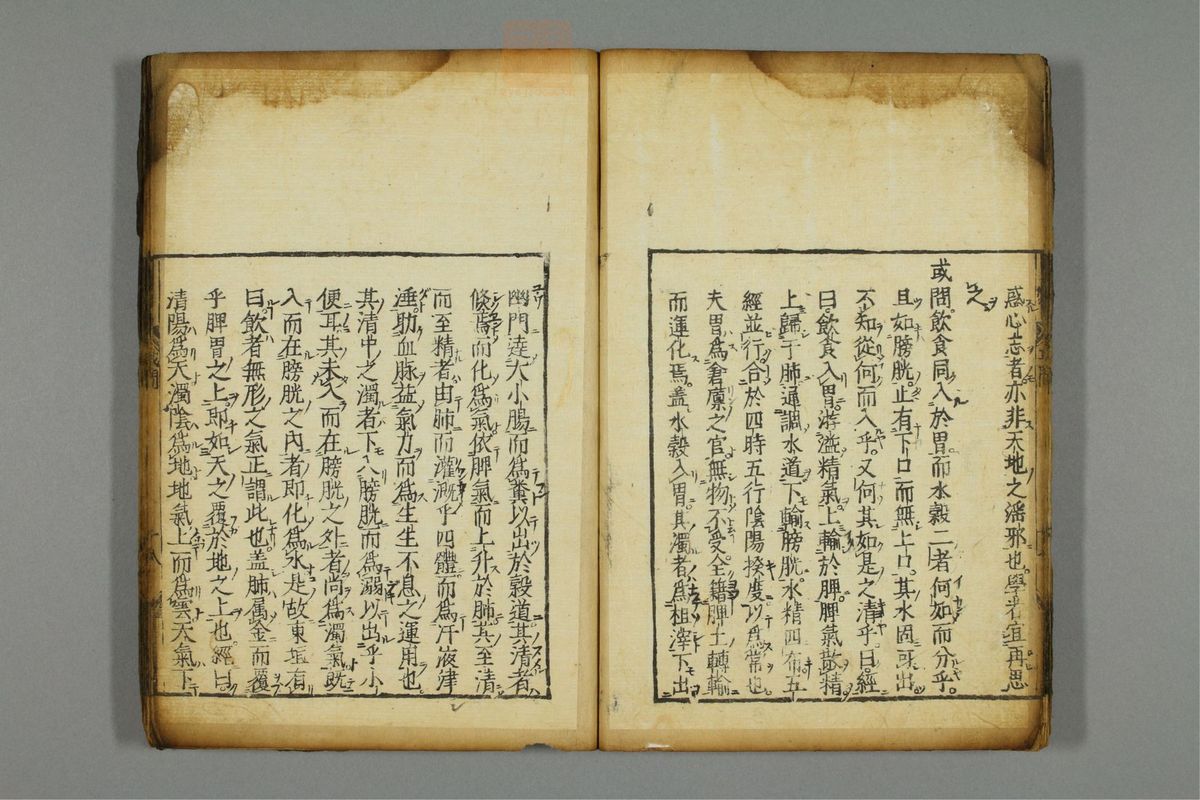 惑心志者亦非天地之淫邪也學者宜再思
之
或問飲食同入於胃而水穀二者何如而分乎
且如膀胱止有下口而無上口其水固可出
不知從何而入乎又何其如是之清乎曰經
曰飲食入胃游溢精氣上輸於脾脾氣散精
上歸于肺通調水道下輸膀胱水精四布五
經並行合於四時五行陰陽揆度以爲常也
夫胃爲倉廪之官無物不受全籍脾土轉輸
而運化焉盖水穀入胃其濁者爲柤滓下出
幽門達大小腸而爲糞以出於穀道其清者
倏焉而化爲氣依脾氣而上升於肺其至清
而至精者由肺而灌溉乎四體而爲汗液津
唾助血脉益氣力而爲生生不息之運用也
其清中之濁者下入膀胱而爲溺以出乎小
便耳其未入而在膀胱之外者尚爲濁氣既
入而在膀胱之内者即化爲水是故東垣有
曰飲者無形之氣正謂此也盖肺属金而覆
乎脾胃之上即如天之覆於地之上也經曰
清陽爲天濁陰爲地地氣上而爲雲天氣下